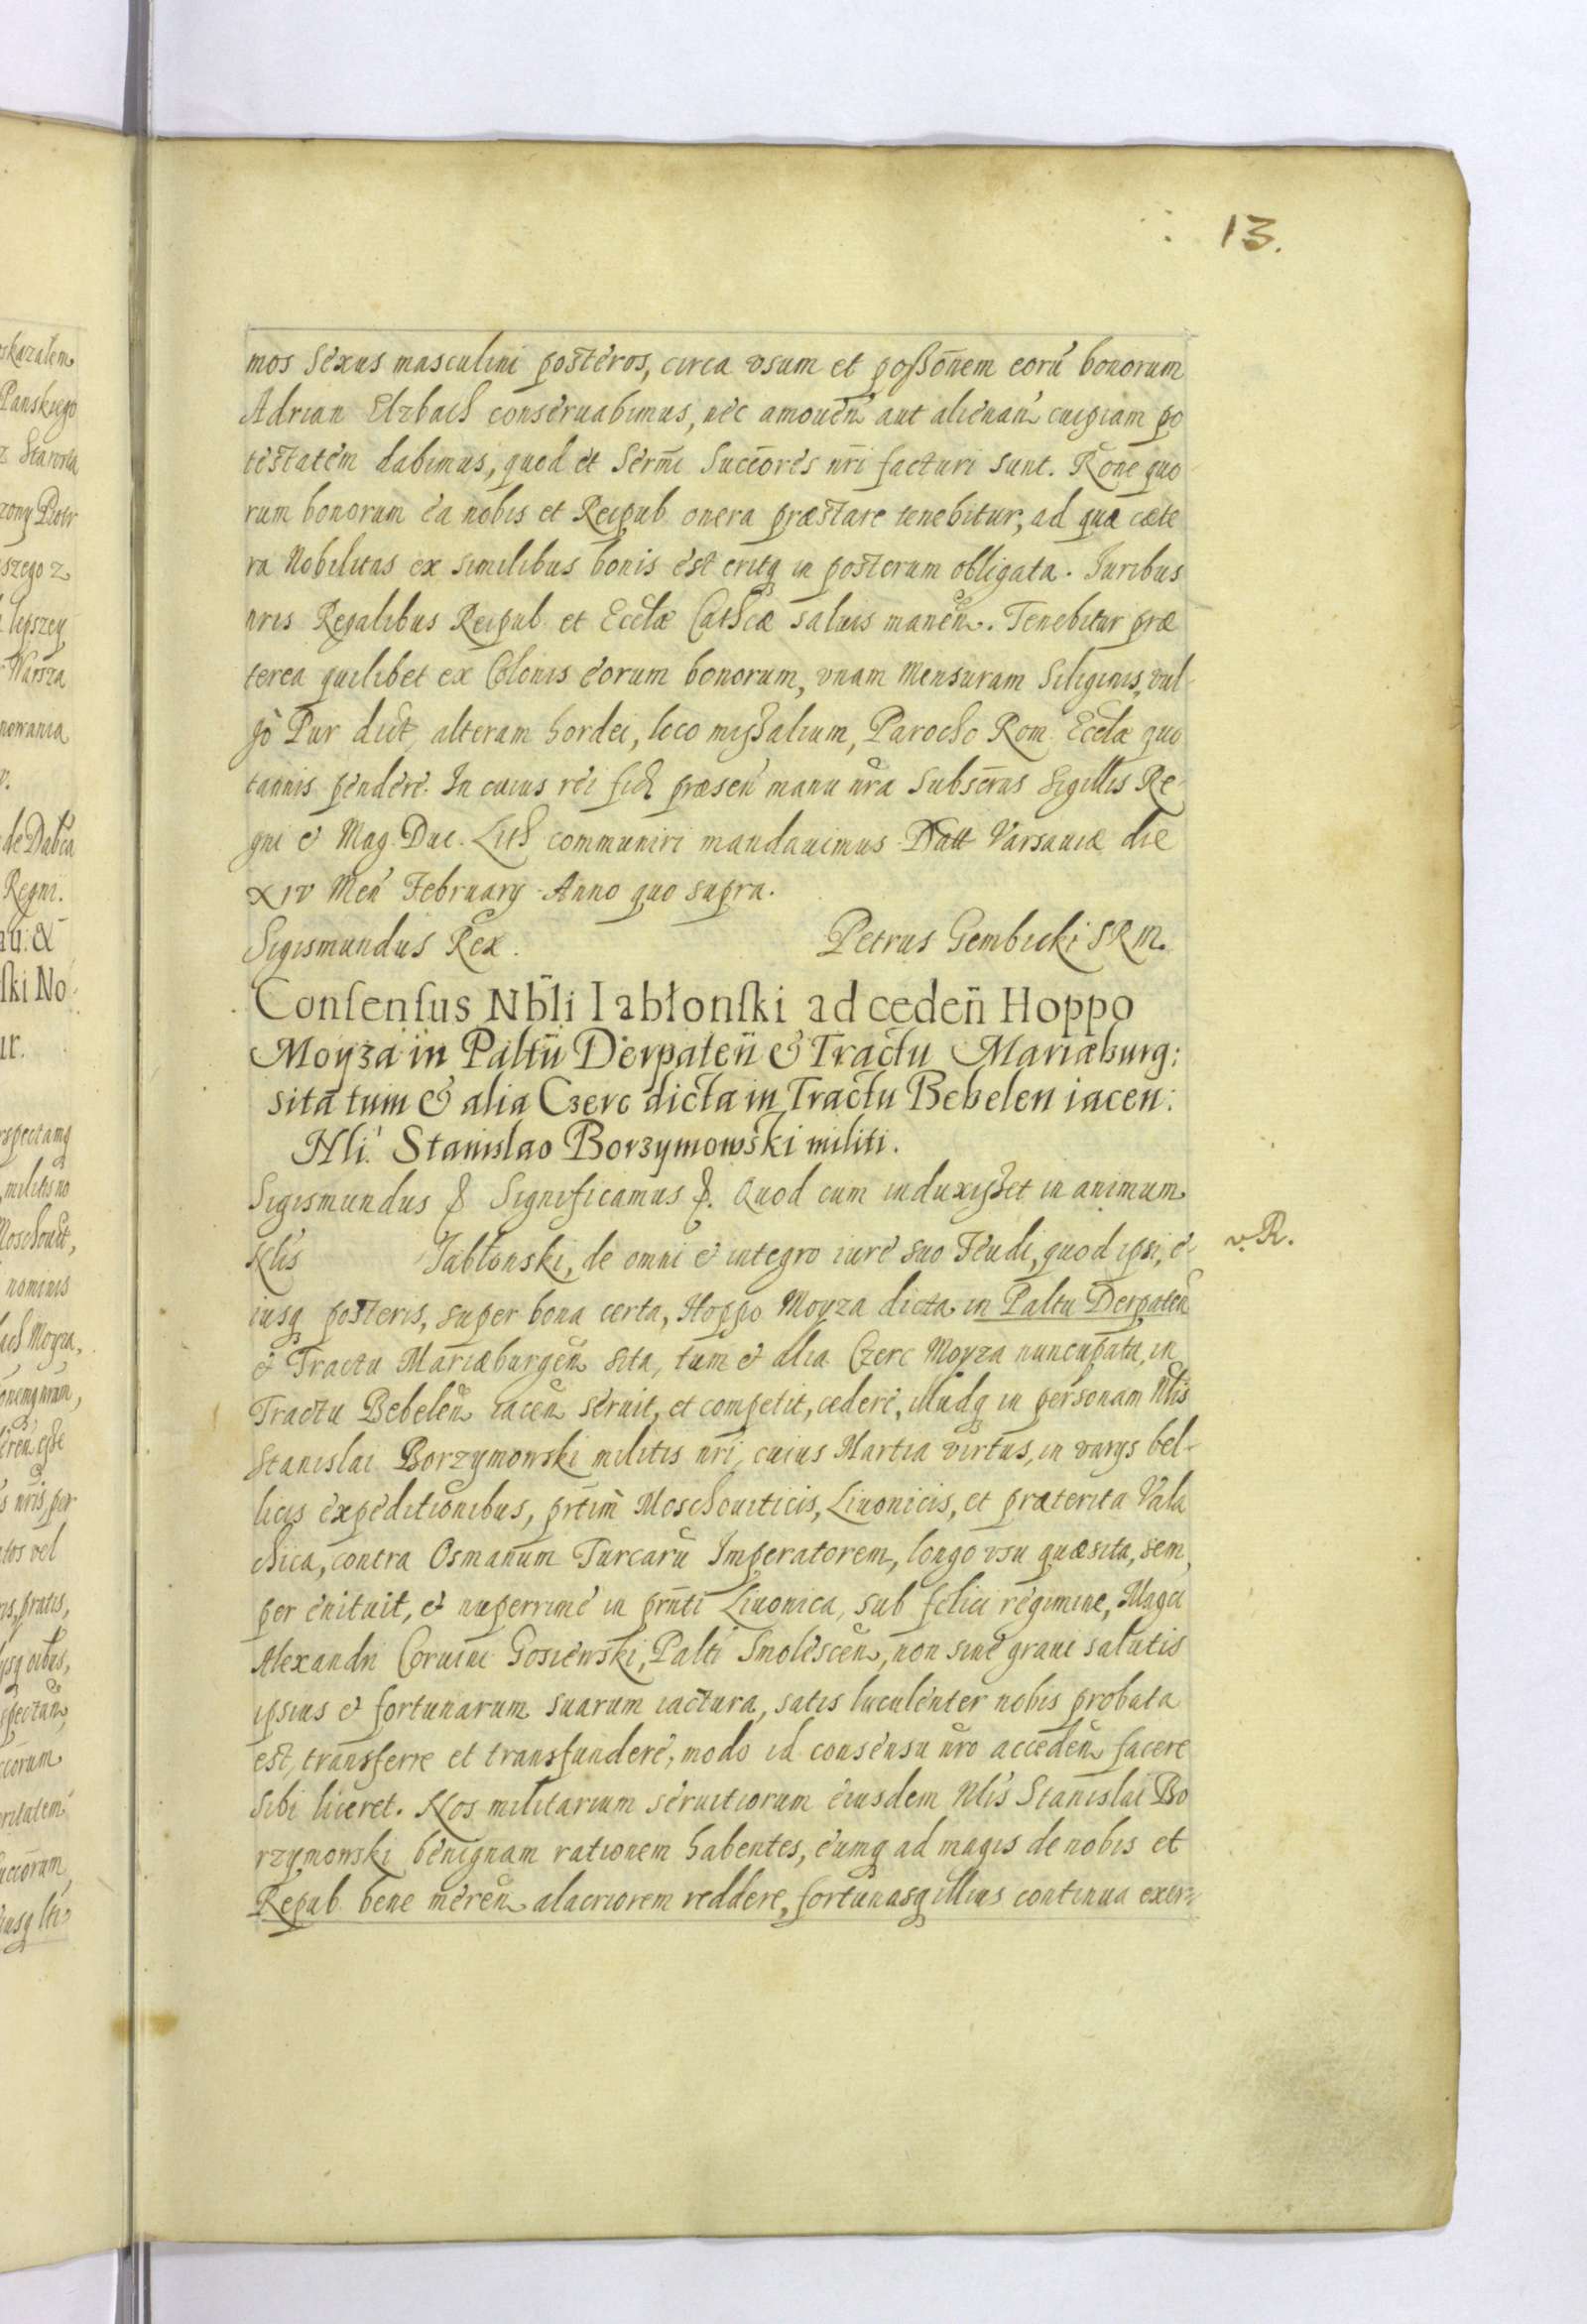 13.
mos sexus masculini posteros, circa vsum et possõnem eorũ bonorum
Adrian Elzbach conseruabimus, nec amouen̄ aut alienan̄ cuipiam po
testatem dabimus, quod et Serm̄i Succōres nr̄i facturi sunt. Rōne quo
rum bonorum ea nobis et Reipub onera præstare tenebitur, ad quæ cæte
ra Nobilitas ex similibus bonis est eritq in posterum obligata. Iuribus
nris Regalibus Reipub et Eccłæ Cathcæ saluis manen̄. Tenebitur præ
terea quilibet ex Colonis eorum bonorum, vnam Mensuram Siliginis, vul-
gò Pur dict, alteram hordei, loco missalium, Parocho Rom Eccłæ quo
tannis pendere. In cuius rei fid præsen̄ manu nr̄a subscr̄as Sigillis Re-
gni & Mag. Duc. Lith communiri mandauimus Datt Varsauiæ die
XIV Men̄ February Anno quo supra.
Sigismundus Rex. Petrus Gembicki SRM.
Consensus Nbl̃i Iabłonski ad ceden̄ Hoppo
Moyza in Paltũ Derpaten̄ & Tractu Mariæburg:
sita tum & alia Czerc dicta in Tractu Bebelen iacen:
Nli. Stanislao Borzymowski militi.
Sigismundus &. Significamus &. Quod cum induxisset in animum
Nlis Jabłonski, de omni & integro iure suo Feudi, quod ipsi, e-
iusq posteris, super bona certa, Hoppo Moyza dicta in Paltu Derpaten̄
& Tractu Mariæburgen̄ sita, tum & alia Czerc Moyza nuncupata, in
Tractu Bebelen̄ iacen̄ seruit, et competit, cedere, illudq in personam Nlis
Stanislai Borzymowski militis nr̄i, cuius Martia virtus, in varys bel-
licis expeditionibus, prtim̄ Moschouiticis, Liuonicis, et præterita Vala
chica, contra Osmanum Turcarũ Imperatorem, longo vsu quæsita, sem
per enituit, & nuperrime in prn̄ti Liuonica, sub felici regimine, Magci
Alexandri Coruini Gosiewski, Palti Smolescen̄, non sine graui salutis
ipsius & fortunarum suarum iactura, satis luculenter nobis probata
est, transferre et transfundere, modo id consensu nr̄o acceden̄ facere
sibi liceret. Nos militarium seruitiorum eiusdem Nlis Stanislai Bo
rzymowski benignam rationem habentes, eumq ad magis de nobis et
Repub bene meren̄ alacriorem reddere, fortunasq illius continua exer-
v. R.